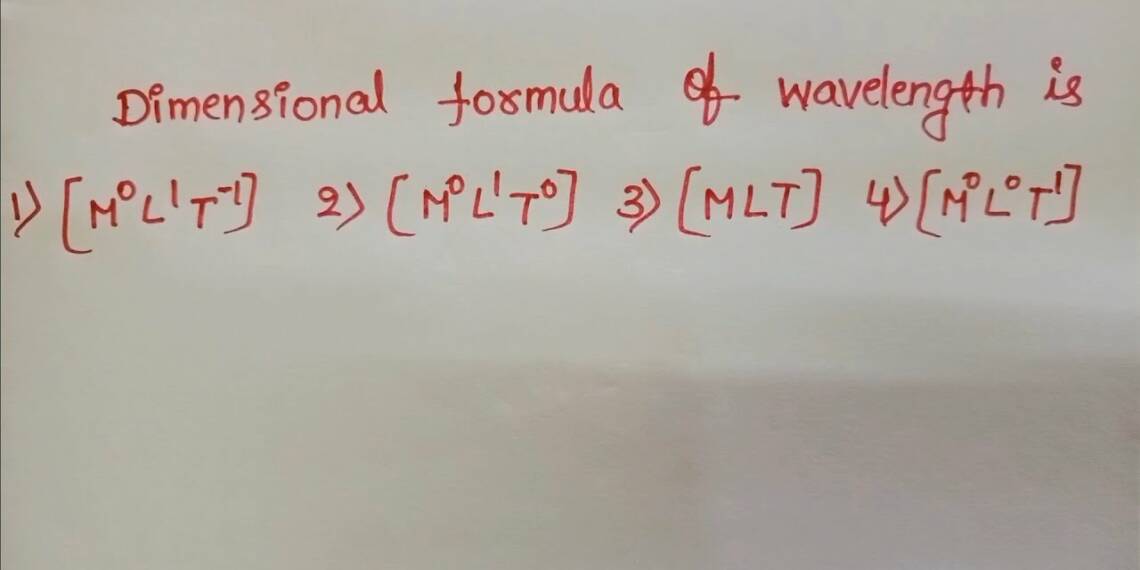 Dimensional formula of wavelength is
1) [M⁰L¹T⁻¹] 2) [M⁰L¹T⁰] 3) [MLT] 4) [M⁰L⁰T¹]